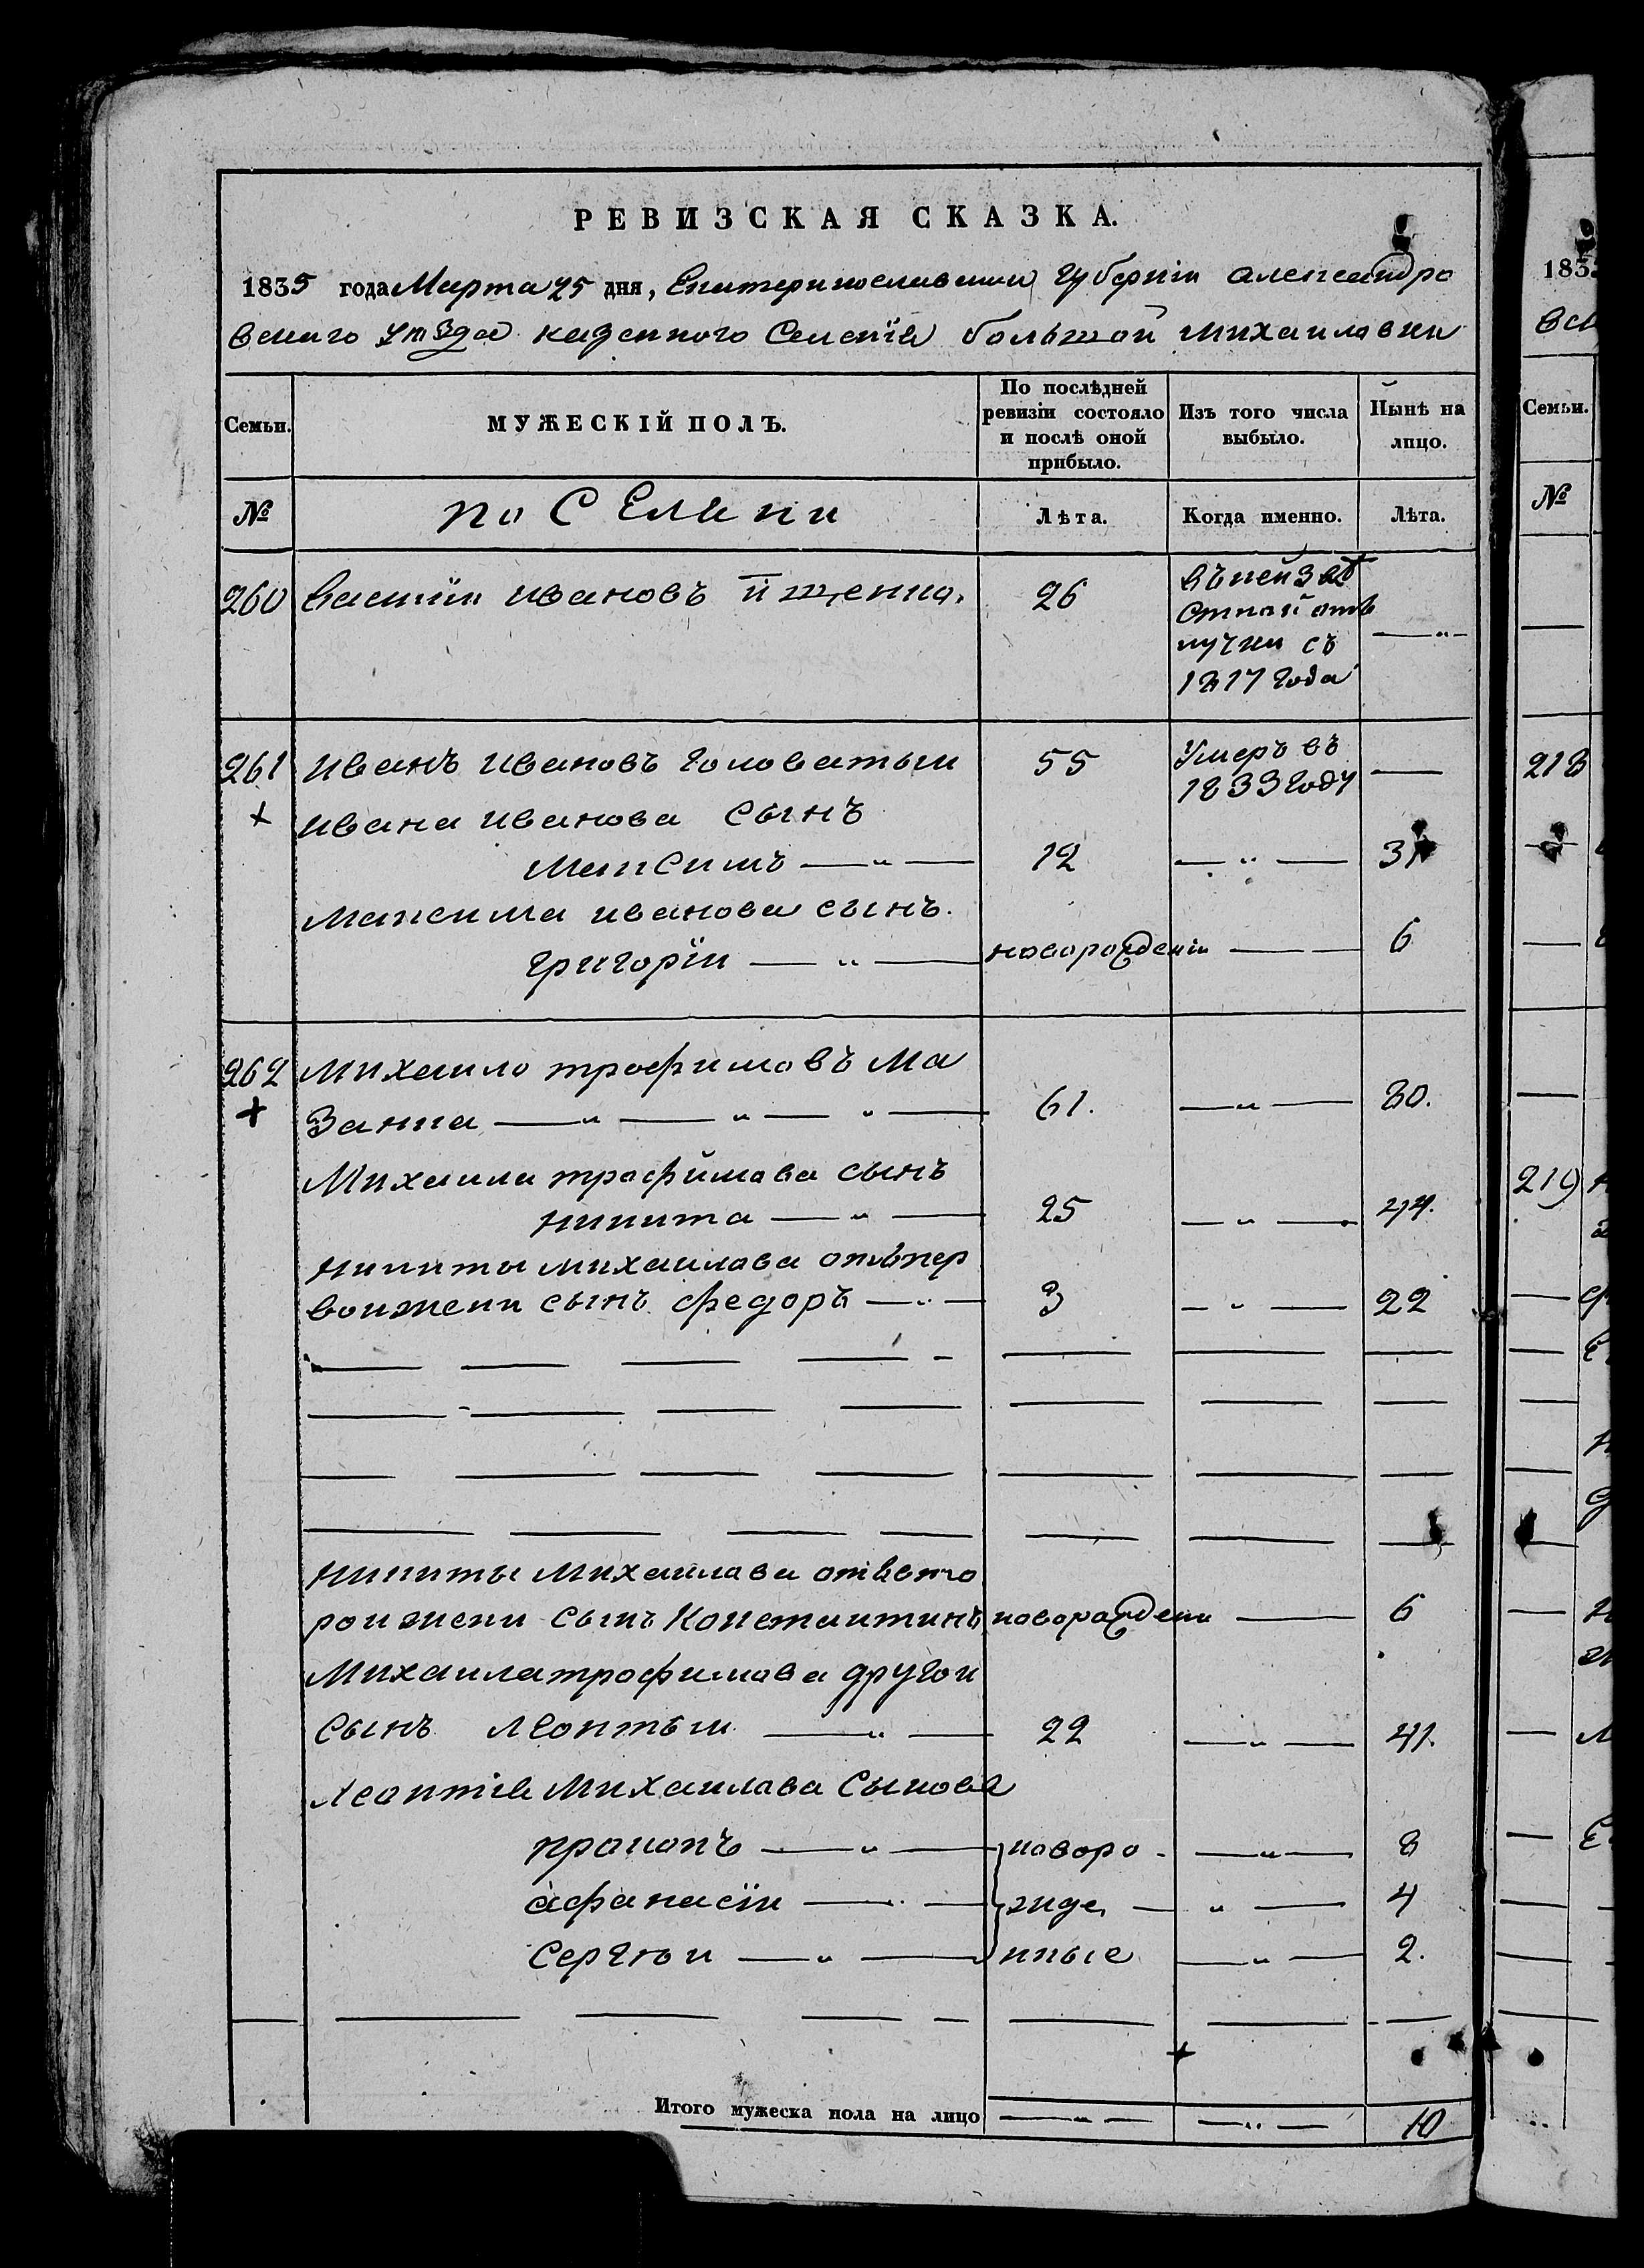 РЕВИЗСКАЯ СКАЗКА.
1835 года Марта 25 дня, Екатеринославской Губерніи александро
вскаго уѣзда казенного Селенія большой михаиловки
Семьи.
МУЖЕСКІЙ ПОЛЪ.
По послѣдней ревизіи состояло и послѣ оной прибыло.
Изъ того числа выбыло.
Нынѣ на лицо.
№
поселяни
Лѣта.
Когда именно.
Лѣта.
260 Василіи ивановъ 26
отлучки съ
1817 года
261 иванъ ивановъ головатыи 55 Умеръ въ
1833 году
ивана иванова сынъ
максимъ 12 31
максима иванова сынъ
григоріи новорожденіи 6
262 михаило трофимовъ Ма
занка 61. 80.
Михаила трофимова сынъ
никита 25 44.
никиты михаилова отъ пер
вои жени сынъ федоръ 3 22
никиты михаилова отъ вто
рои жени сынъ Константинъ новорожденіи 6
Михаила трофимова другои
сынъ леонтьи 22 41.
леонтія михаилова сынова
прокопъ новоро 8
афанасіи жде 4
Сергѣи нные 2.
Итого мужеска пола на лицо 10
183
вск
Семьи.
№
218
219